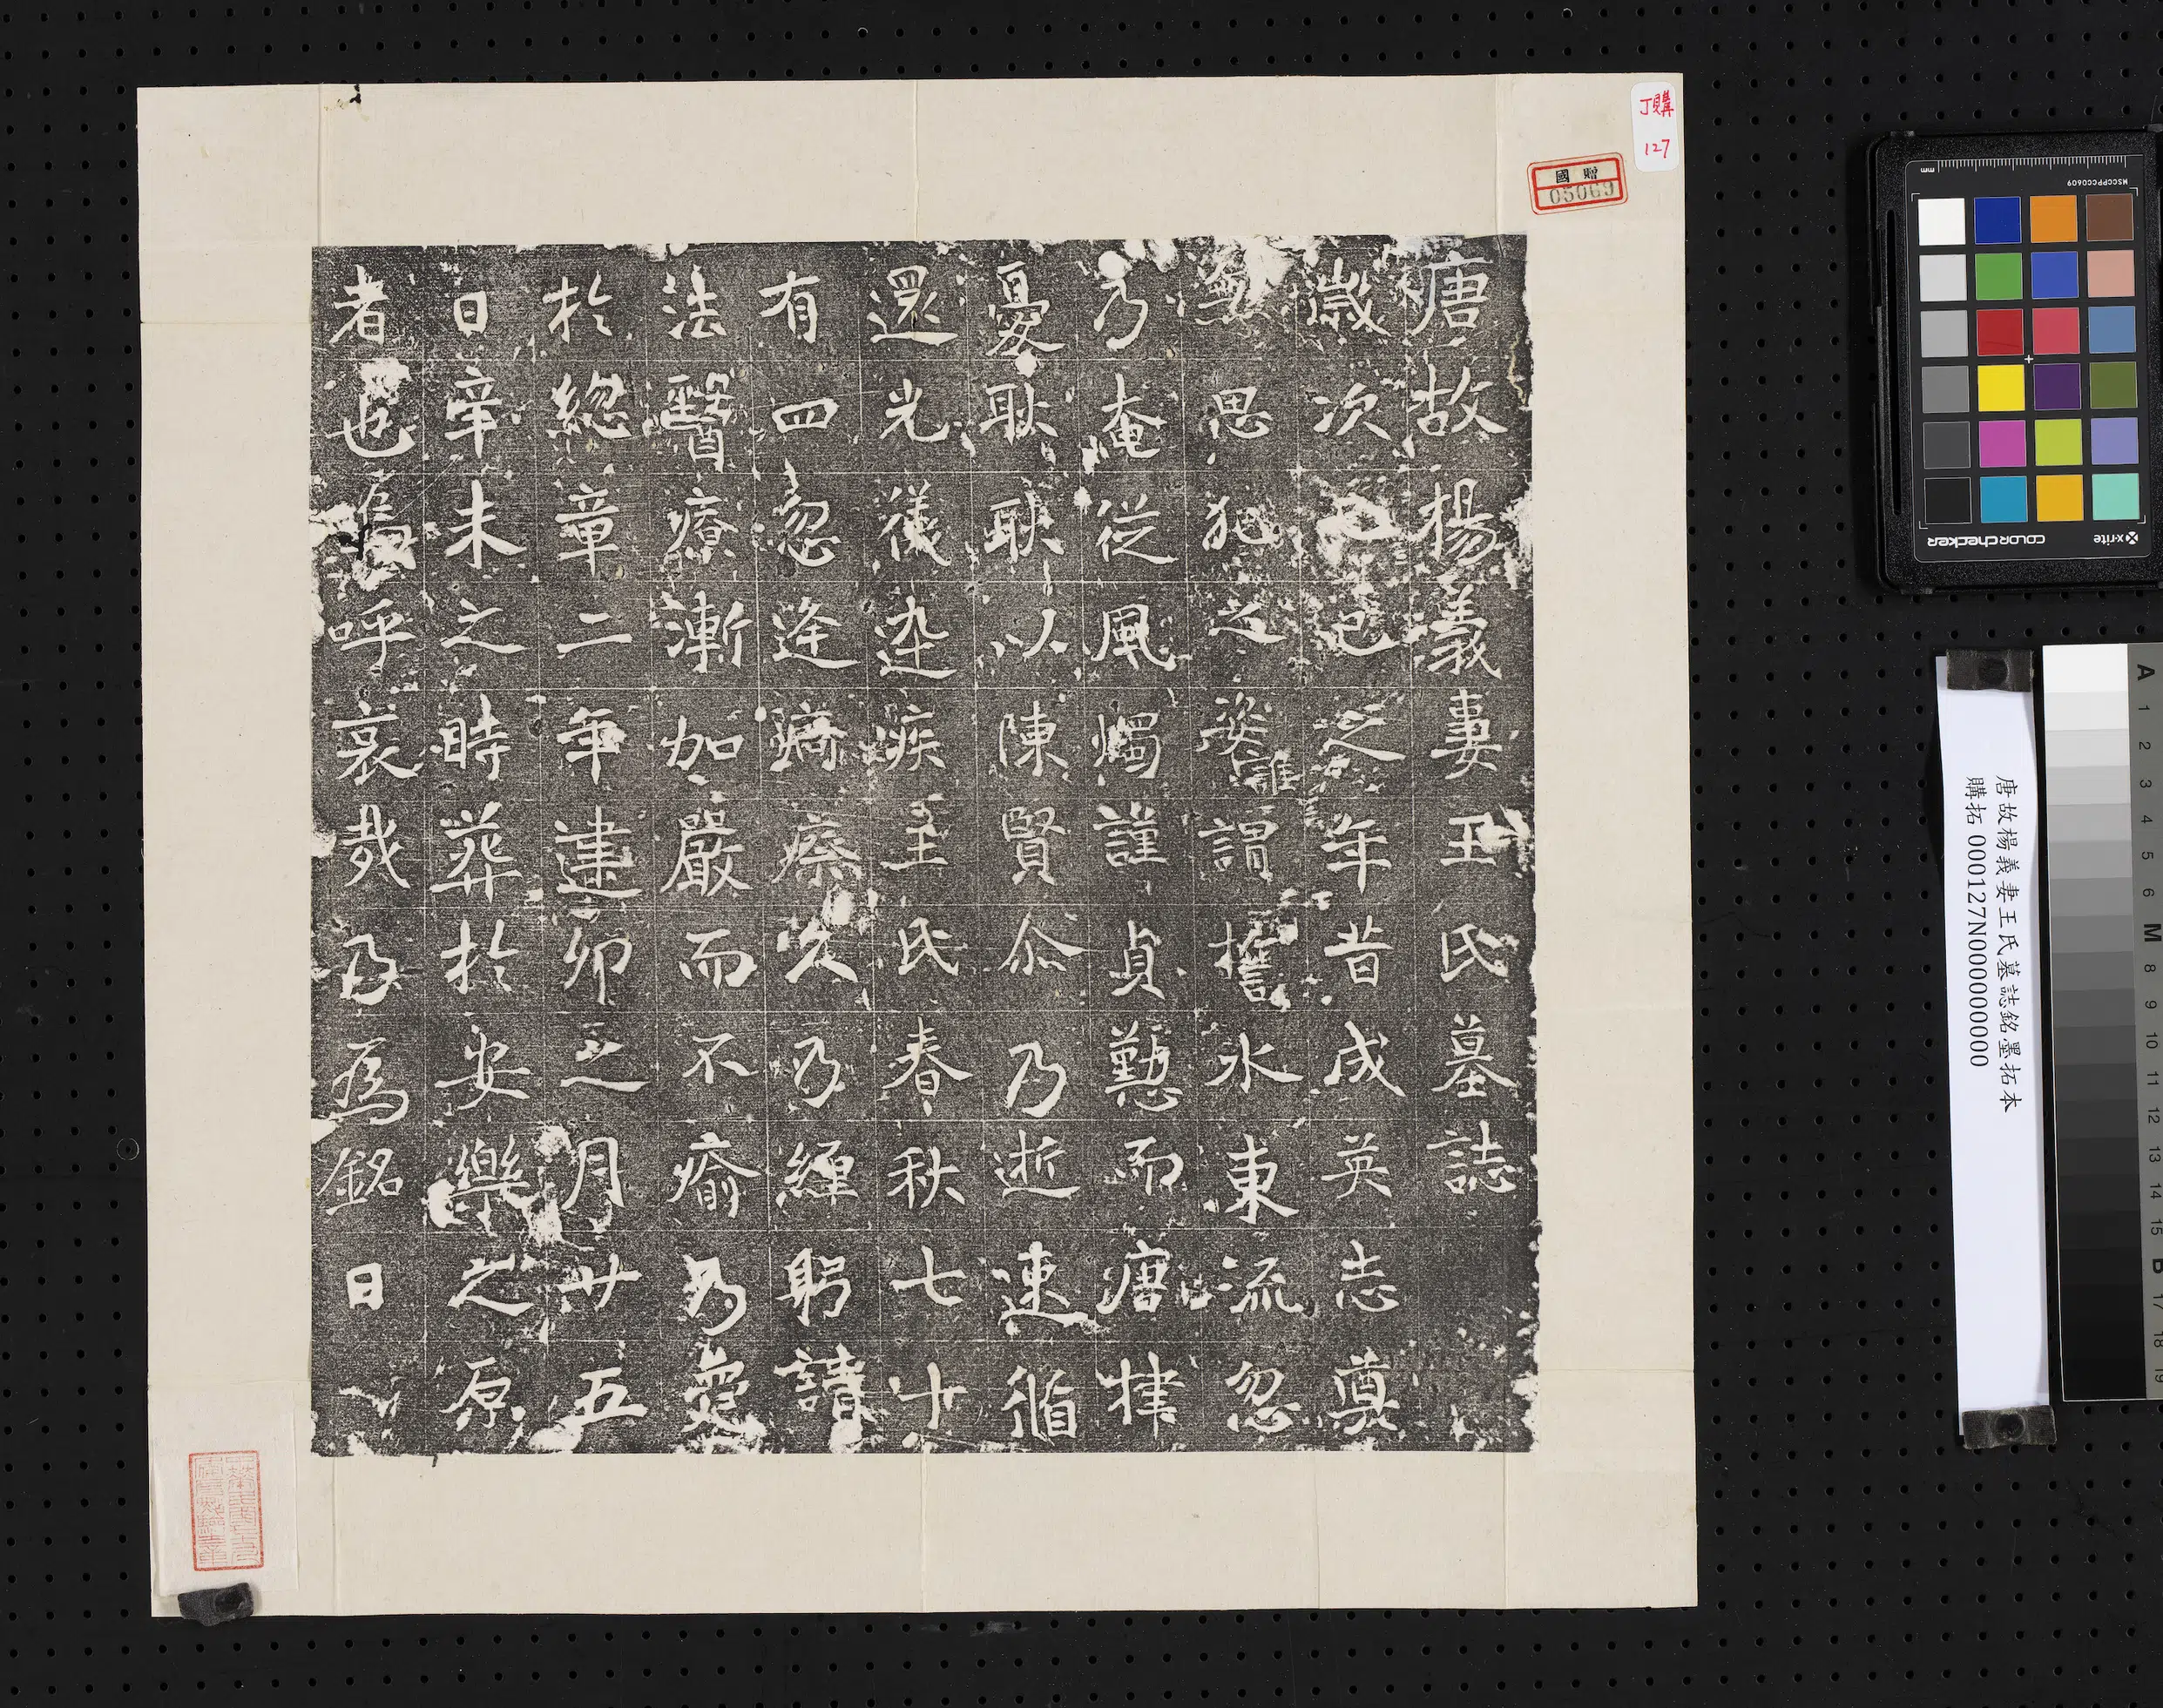 唐故楊義妻王氏墓誌
歲次己巳之年昔成英志真
思犯之姿誰謂挻水東流忽
乃奄從風燭謹貞懃而唐律
憂耿耿以陳賢尒乃逝速循
還光儀染疾主氏春秋七十
有四忽逢痾瘵久乃纏躬請
法醫療漸加嚴而不瘉為
於總章二年建卯之月廿五
日辛未之時葬於安樂之原
者也嗚呼哀哉乃為銘曰
丁購
127
國贈
05069
唐故楊義妻王氏墓誌銘墨拓本
購拓 000127N000000000
MSCCPPCC0609
mm
x-rite
colorchecker
A 1 2 3 4 5 6 M 8 9 10 11 12 13 14 15 B 17 18 19